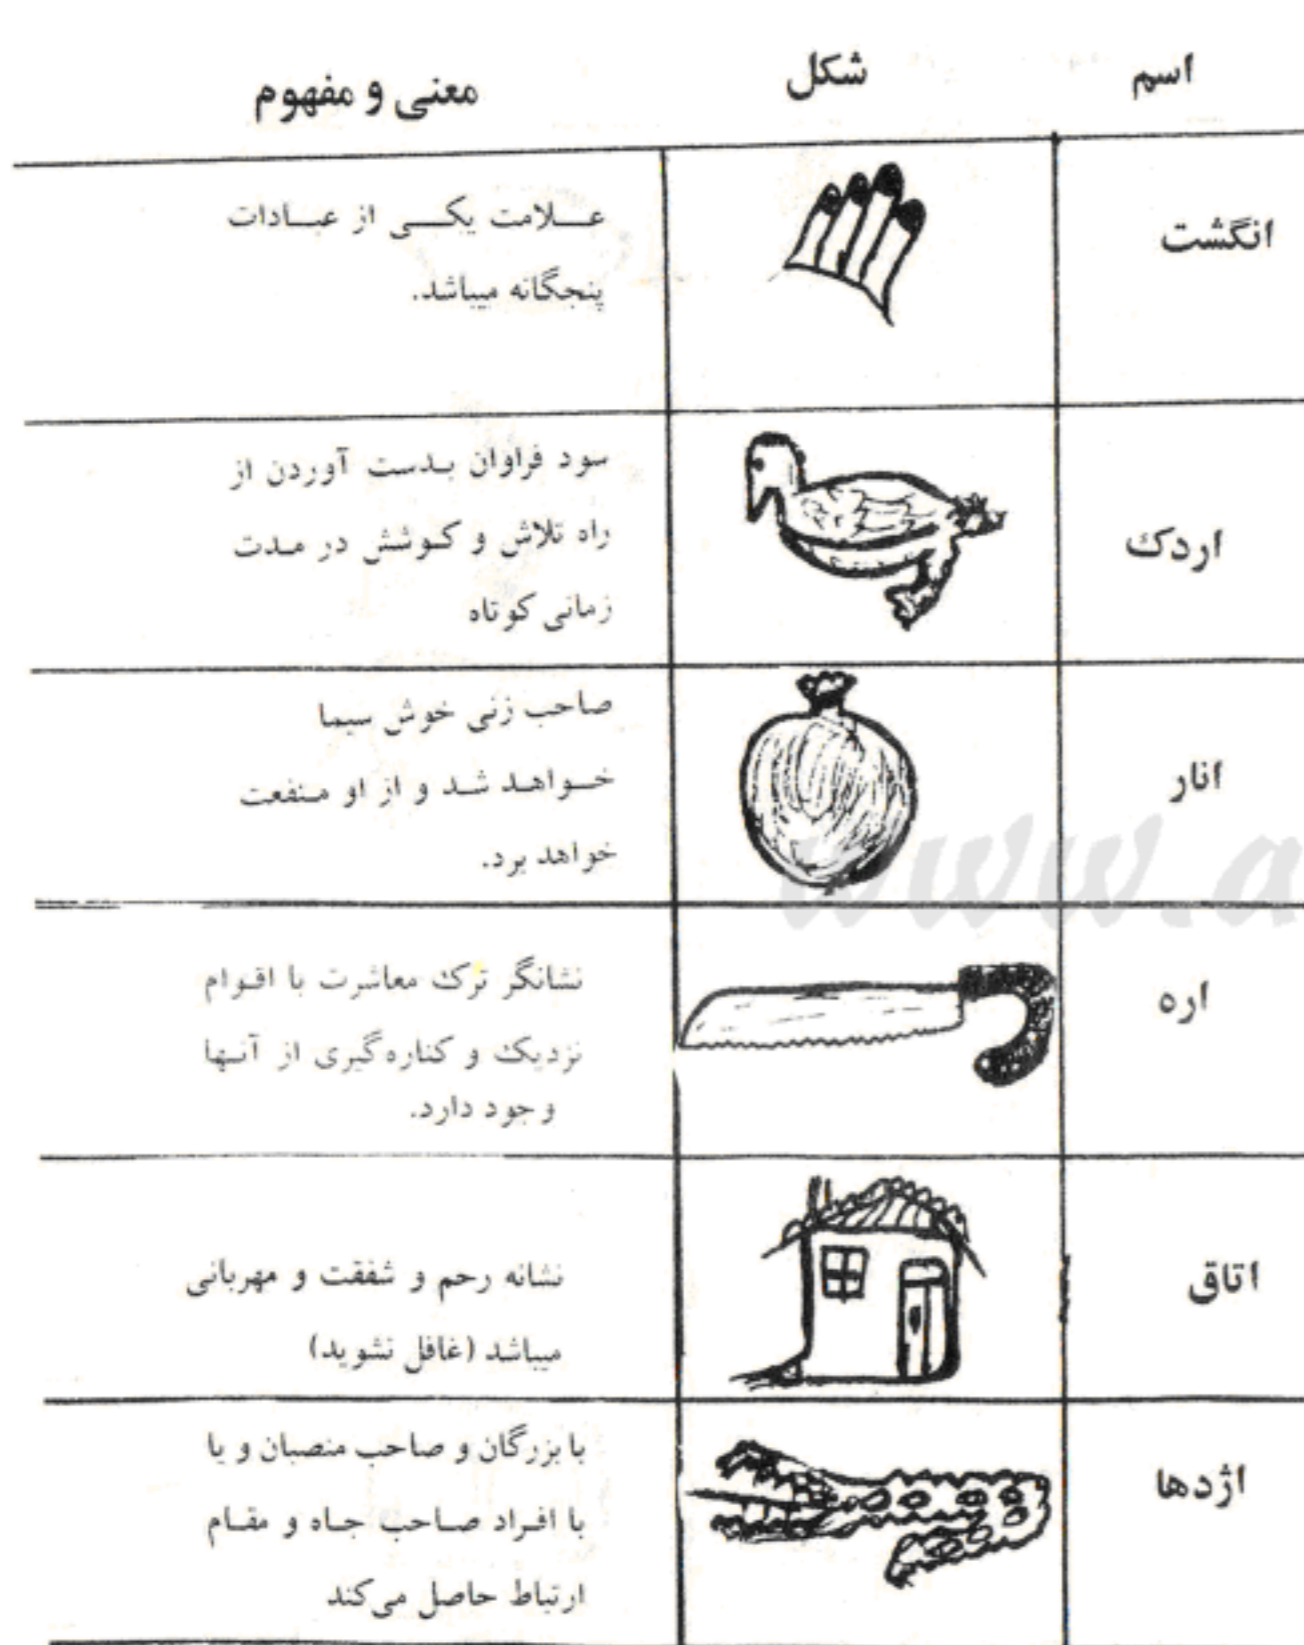 اسم شکل معنی و مفهوم
انگشت
علامت یکی از عبادات
پنجگانه میباشد.
اردک
سود فراوان بدست آوردن از
راه تلاش و کوشش در مدت
زمانی کوتاه
انار
صاحب زنی خوش سیما
خواهد شد و از او منفعت
خواهد برد.
اره
نشانگر ترک معاشرت با اقوام
نزدیک و کناره‌گیری از آنها
وجود دارد.
اتاق
نشانه رحم و شفقت و مهربانی
میباشد (غافل نشوید)
اژدها
با بزرگان و صاحب منصبان و یا
با افراد صاحب جاه و مقام
ارتباط حاصل می‌کند
www.a